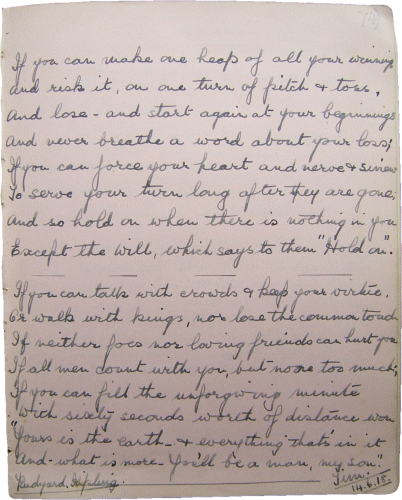 If you can make one heap of all your winnings
and risk it, on one turn of pitch & toss,
And lose - and start again at your beginnings
And never breathe a word about your loss;
If you can force your heart and nerve & sinew
To serve your turn long after they are gone;
And so hold on when there is nothing in you
Except the Will, which says to them "Hold on".
If you can talk with crowds & keep your virtue,
Or walk with kings, nor lose the common touch
If neither foes nor loving friends can hurt you
If all men count with you, but none too much;
If you can fill the unforgiving minute
With sixty seconds worth of distance won
"Yours is the earth - & everything that's in it
And - what is more - You'll be a man, my son."
Rudyard Kipling.
14.6.18.